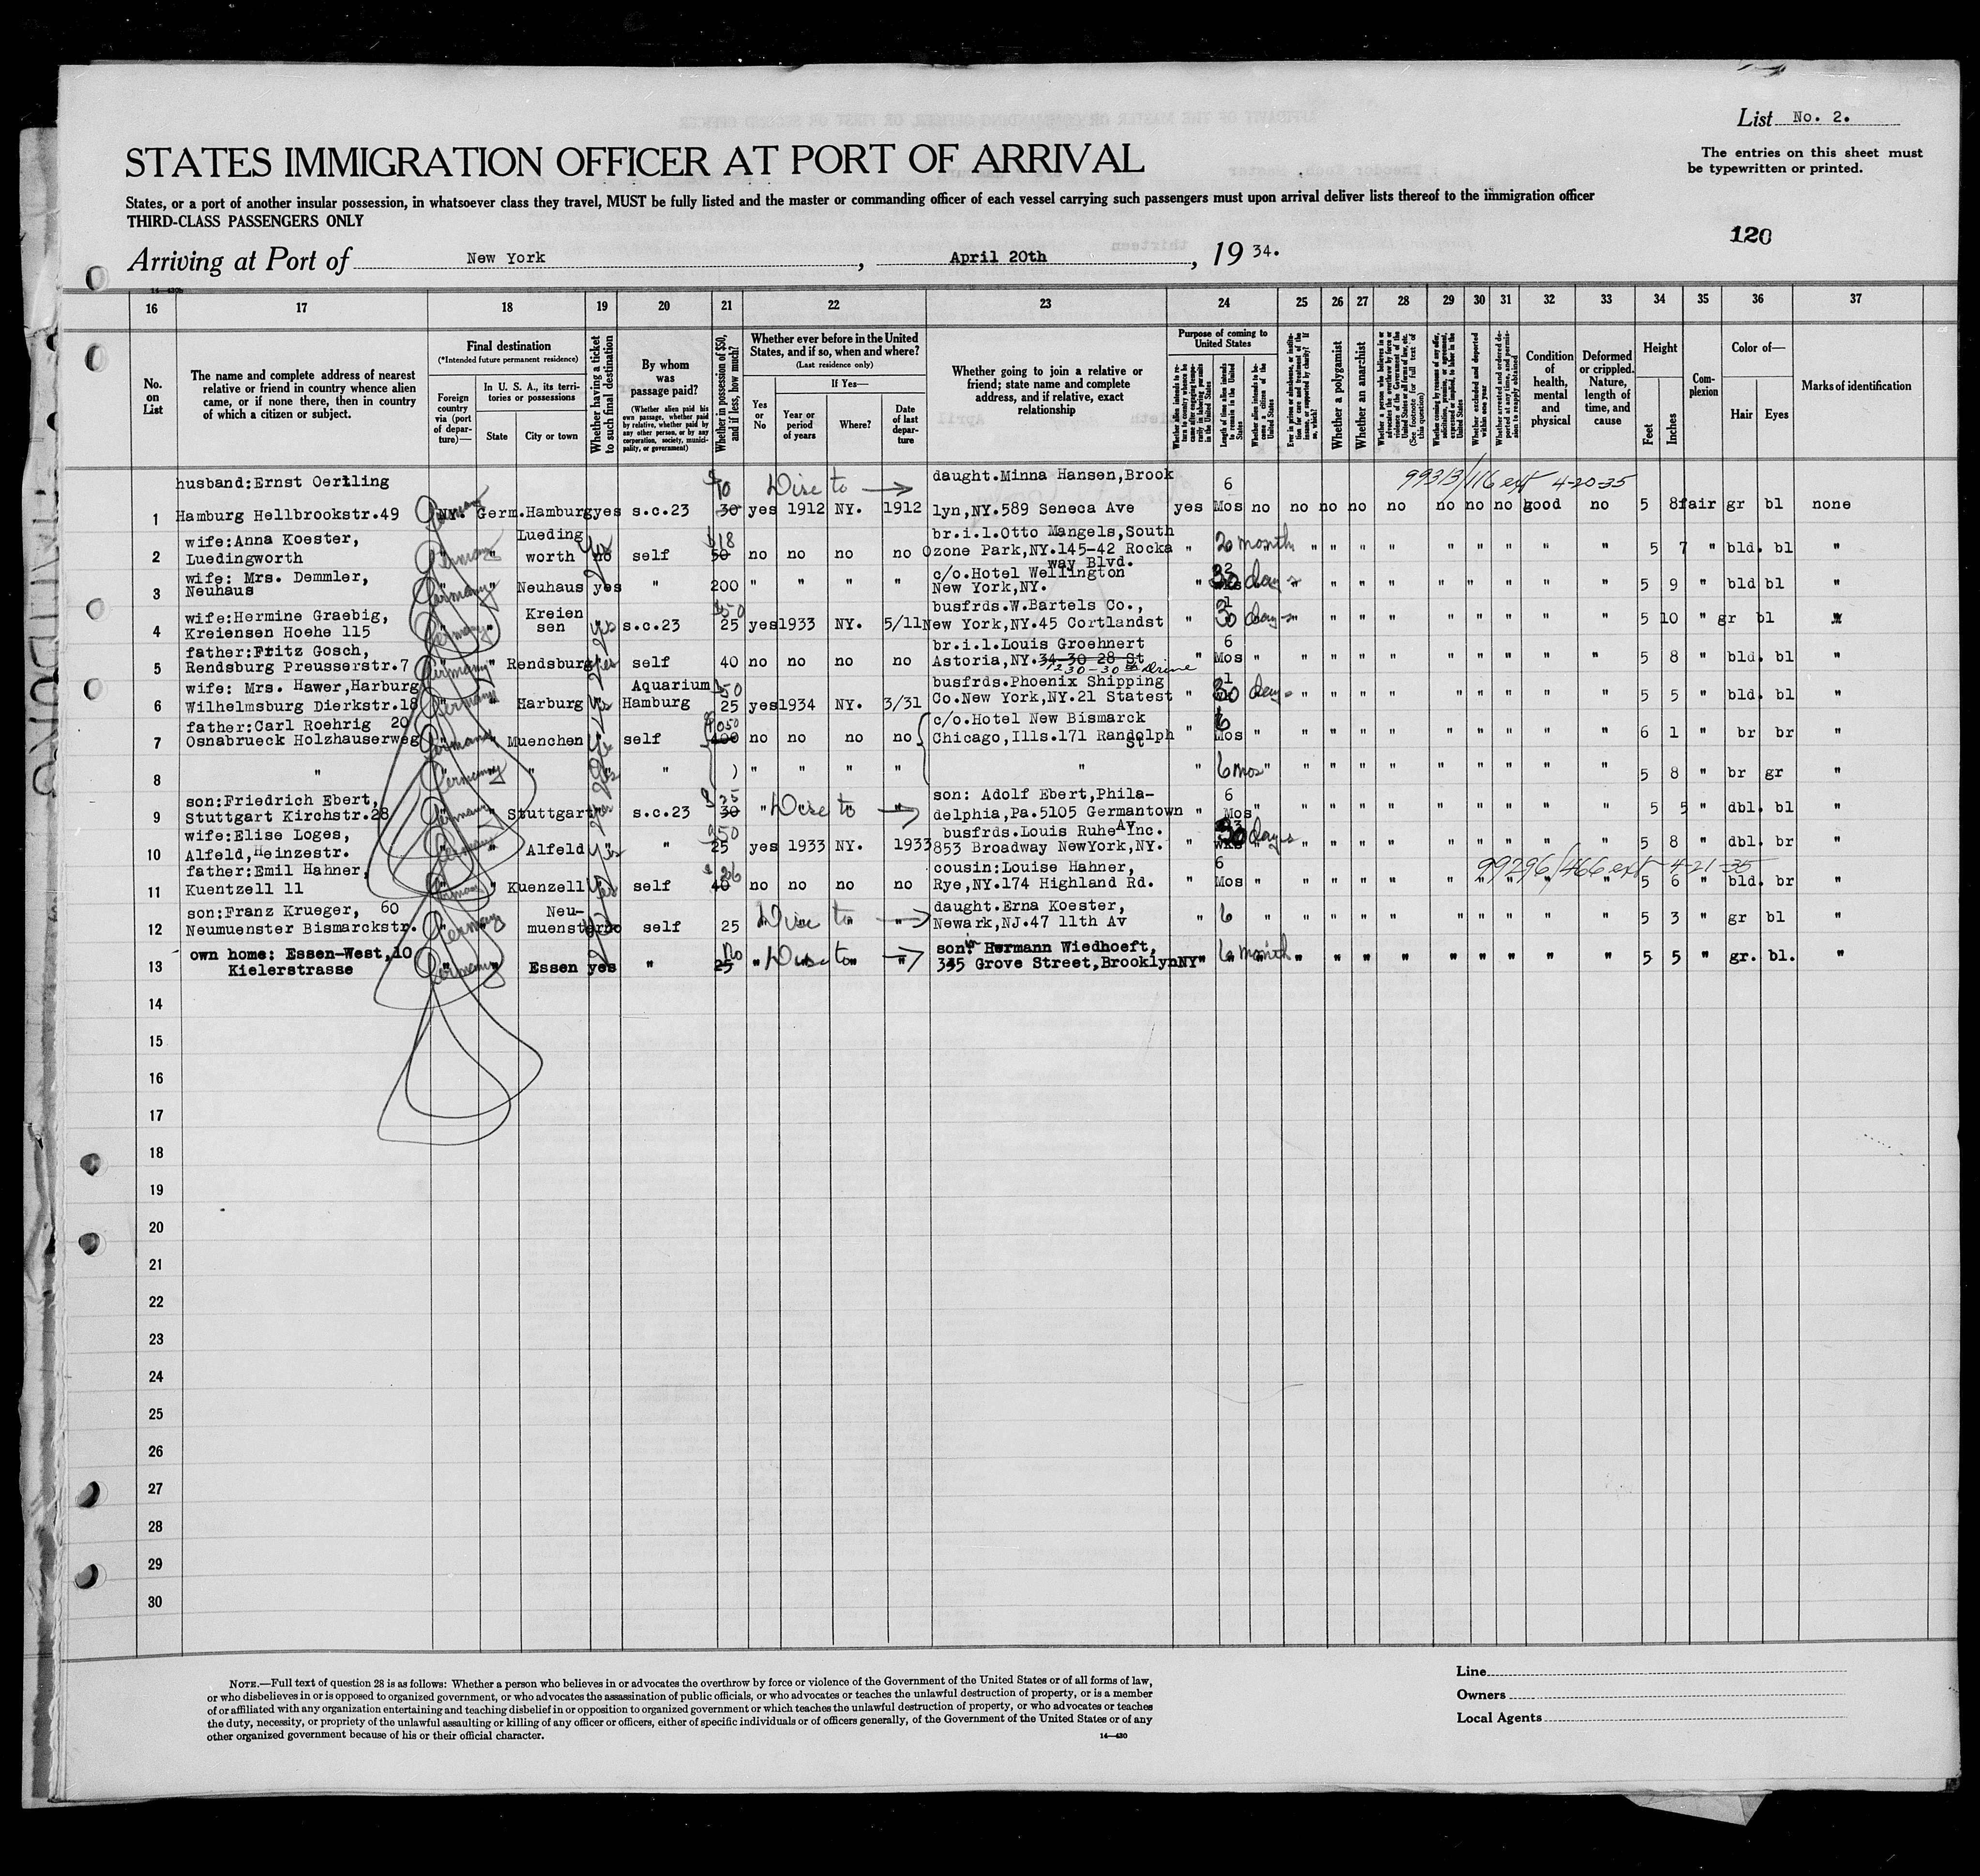 List No. 2.
The entries on this sheet must
be typewritten or printed.
STATES IMMIGRATION OFFICER AT PORT OF ARRIVAL
States, or a port of another insular possession, in whatsoever class they travel, MUST be fully listed and the master or commanding officer of each vessel carrying such passengers must upon arrival deliver lists thereof to the immigration officer
THIRD-CLASS PASSENGERS ONLY
120
Arriving at Port of New York, April 20th, 19 34.
16 17 18 19 20 21 22 23 24 25 26 27 28 29 30 31 32 33 34 35 36 37
No. on List
The name and complete address of nearest relative or friend in country whence alien came, or if none there, then in country of which a citizen or subject.
Final destination
(*Intended future permanent residence)
Foreign country via (port of departure)—
In U. S. A., its territories or possessions
State
City or town
Whether having a ticket to such final destination
By whom was passage paid?
(Whether alien paid his own passage, whether paid by relative, whether paid by any other person, or by any corporation, society, municipality, or government)
Whether in possession of $50, and if less, how much?
Whether ever before in the United States, and if so, when and where?
(Last residence only)
If Yes—
Yes or No
Year or period of years
Where?
Date of last departure
Whether going to join a relative or friend; state name and complete address, and if relative, exact relationship
Purpose of coming to United States
Length of time alien intends to remain in the United States
Whether alien intends to become a citizen of the United States
Whether a polygamist
Whether an anarchist
Condition of health, mental and physical
Deformed or crippled. Nature, length of time, and cause
Height
Feet
Inches
Complexion
Color of—
Hair
Eyes
Marks of identification
husband:Ernst Oertling $10 daught.Minna Hansen,Brook 6 99313/116 ext 4-20-35
1 Hamburg Hellbrookstr.49 Germany NY. Germ.Hamburg yes s.c.23 30 yes 1912 NY. 1912 lyn,NY.589 Seneca Ave yes Mos no no no no no no no no good no 5 8 fair gr bl none
wife:Anna Koester, Lueding $18 br.i.l.Otto Mangels,South
2 Luedingworth Germany " worth no yes self 50 no no no no Ozone Park,NY.145-42 Rocka " 2 month " " " " " " " " " 5 7 " bld. bl "
way Blvd.
wife: Mrs. Demmler, c/o.Hotel Wellington
3 Neuhaus Germany " Neuhaus yes " 200 " " " " New York,NY. " 30 days " " " " " " " " " 5 9 " bld bl "
wife:Hermine Graebig, Kreien $50 busfrds.W.Bartels Co.,
4 Kreiensen Hoehe 115 Germany " sen yes s.c.23 25 yes 1933 NY. 5/11 New York,NY.45 Cortlandst " 30 days " " " " " " " " 5 10 " gr bl "
father:Fritz Gosch, br.i.l.Louis Groehnert 6
5 Rendsburg Preusserstr.7 Germany " Rendsburg yes self 40 no no no no Astoria,NY.34-30 28 St " Mos " " " " " " " " " " 5 8 " bld. bl "
wife: Mrs. Hawer,Harburg Aquarium $50 busfrds.Phoenix Shipping
6 Wilhelmsburg Dierkstr.18 Germany " Harburg yes Hamburg 25 yes 1934 NY. 3/31 Co.New York,NY.21 Statest " 30 days " " " " " " " " 5 5 " bld. bl "
father:Carl Roehrig 20 c/o.Hotel New Bismarck 6
7 Osnabrueck Holzhauserweg Germany " Muenchen yes self 400 no no no no Chicago,Ills.171 Randolph St " Mos " " " " " " " " " " 6 1 " br br "
8 " Germany " " yes " ) " " " " " " 6 mos " " " " " " " " " " 5 8 " br gr "
son:Friedrich Ebert, son: Adolf Ebert,Phila- 6
9 Stuttgart Kirchstr.28 Germany " Stuttgart s.c.23 30 " " delphia,Pa.5105 Germantown " Mos " " " " " " " " " " 5 5 " dbl. bl "
wife:Elise Loges, $50 busfrds.Louis Ruhe Inc. Av
10 Alfeld,Heinzestr. Germany " Alfeld yes " 25 yes 1933 NY. 1933 853 Broadway NewYork,NY. " 30 days " " " " " " " " 5 8 " dbl. br "
father:Emil Hahner, $26 cousin:Louise Hahner, 6 99296/466 ext 4-21-35
11 Kuentzell 11 Germany " Kuenzell yes self 40 no no no no Rye,NY.174 Highland Rd. " Mos " " " " " " " " " " 5 6 " bld. br "
son:Franz Krueger, 60 Neu- daught. Erna Koester,
12 Neumuenster Bismarckstr. Germany " muenster self 25 " " Newark,NJ.47 11th Av " 6 " " " " " " " " " " 5 3 " gr bl "
own home: Essen-West,10 son: Hermann Wiedhoeft,
13 Kielerstrasse Germany " Essen yes " 25 " " 345 Grove Street,Brooklyn NY " 6 month " " " " " " " " " 5 5 " gr. bl. "
14
15
16
17
18
19
20
21
22
23
24
25
26
27
28
29
30
NOTE.—Full text of question 28 is as follows: Whether a person who believes in or advocates the overthrow by force or violence of the Government of the United States or of all forms of law,
or who disbelieves in or is opposed to organized government, or who advocates the assassination of public officials, or who advocates or teaches the unlawful destruction of property, or is a member
of or affiliated with any organization entertaining and teaching disbelief in or opposition to organized government or which teaches the unlawful destruction of property, or who advocates or teaches
the duty, necessity, or propriety of the unlawful assaulting or killing of any officer or officers, either of specific individuals or of officers generally, of the Government of the United States or of any
other organized government because of his or their official character.
14—430
Line
Owners
Local Agents